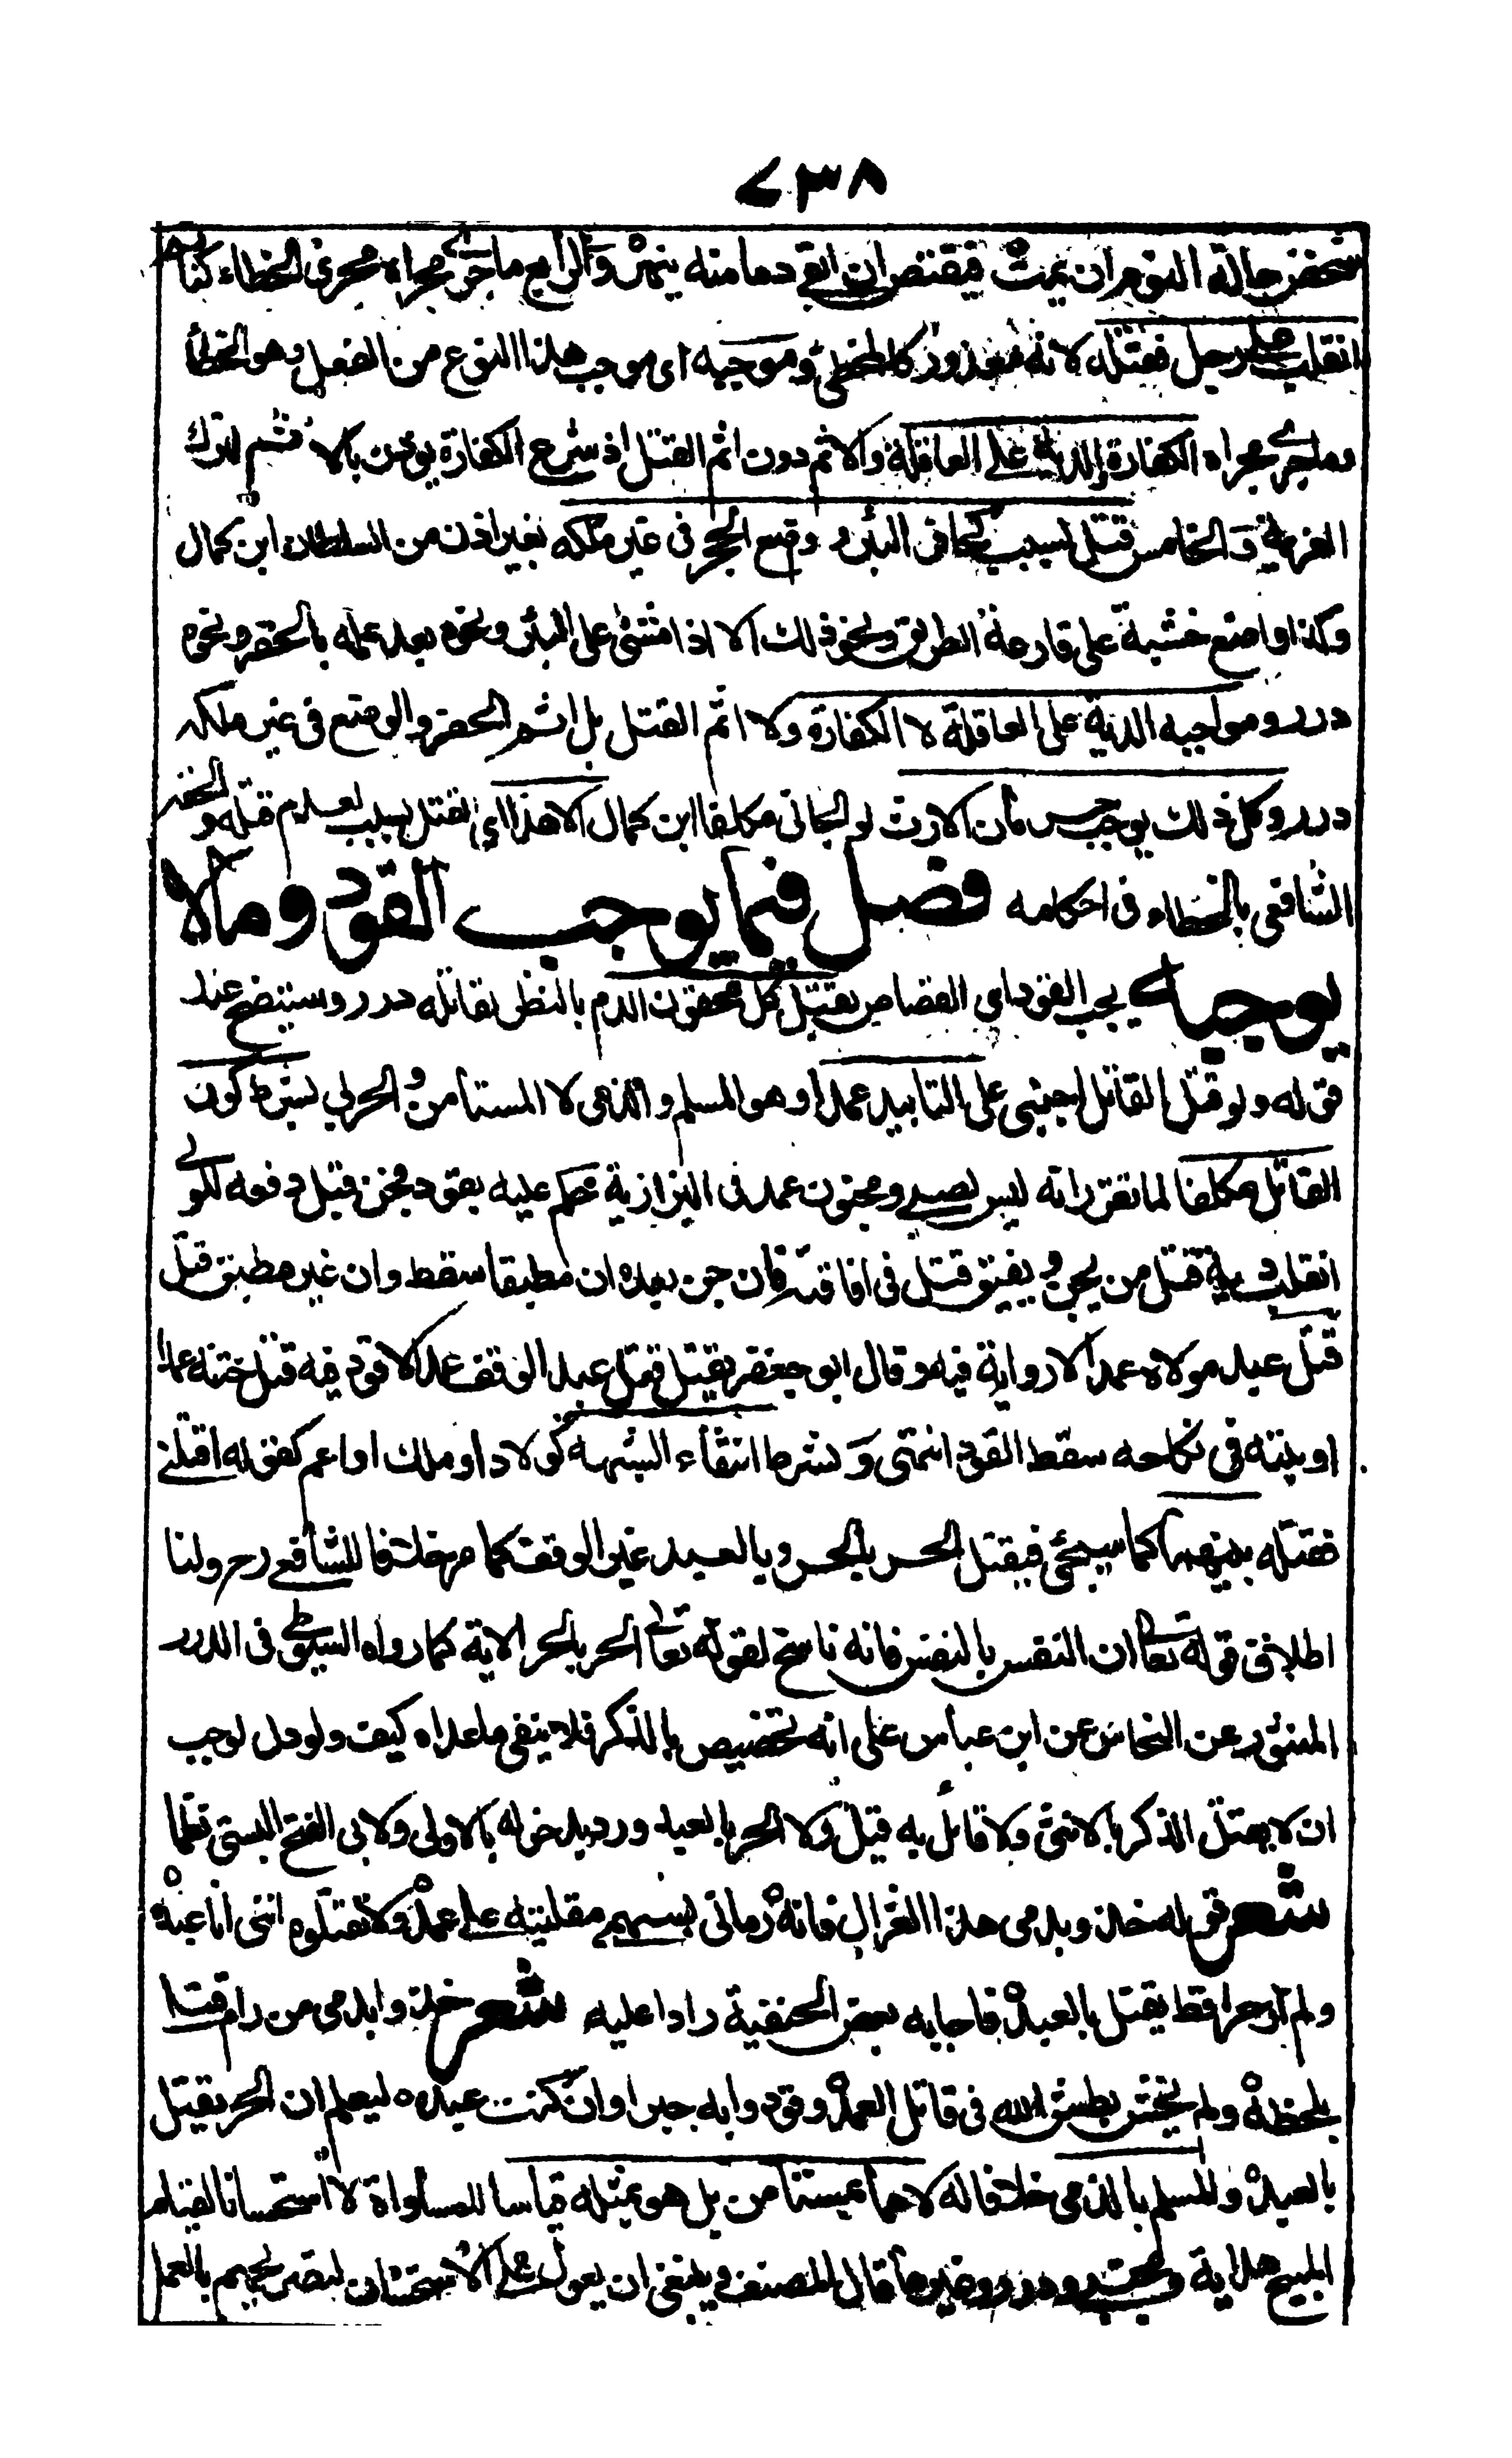 ٧٣٨
شخص حالة النوم ان يمت فيقتص ان ابقى دما منه ينهر والرابع ما جرى مجراه مجرى الخطاء كنائم
انقلب على رجل فقتله لانه معذور كالمخطئ وموجبه اى موجب هذا النوع من الفعل وهو الخطأ
وما جرى مجراه الكفارة والدية على العاقلة والاثم دون اثم القتل اذ شرع الكفارة يؤذن بالاثم لترك
العزيمة والخامس قتل بسبب كحافر البئر ووضع الحجر فى غير ملكه بغير اذن من السلطان ابن كمال
وكذا واضع خشبة على قارعة الطريق ونحو ذلك الا اذا مشى على البئر ونحوه بعد علمه بالحفر ونحوه
درر وموجبه الدية على العاقلة لا الكفارة ولا اثم القتل بل اثم الحفر والوضع فى غير ملكه
درر وكل ذلك يوجب حرمان الارث لو الجانى مكلفا ابن كمال الا هذا اى القتل بسبب لعدم قتله والحقه
الشافعى بالخطاء فى احكامه فصل فيما يوجب القود وما لا
يوجبه يجب القود اى القصاص بقتل كل محقون الدم بالنظر لقاتله درر وسيتضح عند
قوله ولو قتل القاتل اجنبى على التابيد عمدا وهو المسلم والذمى لا المستامن والحربى بشرط كون
القاتل مكلفا لما تقرر انه ليس لصبى ومجنون عمد فى البزازية حكم عليه بقود فجن قبل دفعه للولى
انقلب دية قتل من يجن ويفيق قتل فى افاقته فان جن بعده ان مطبقا سقط وان غير مطبق قتل
قتل عبد مولاه عمدا لا رواية فيه وقال ابو جعفر يقتل قتل عبد الوقف عمدا لا قود فيه قتل ختنه عمدا
او بنته فى نكاحه سقط القود انتهى وبشرط انتفاء الشبهة كولاد او ملك او اعم كقوله اقتلنى
فقتله بينهما كما سيجئ فيقتل الحر بالحر وبالعبد غير الوقف كما مر خلافا للشافعى رح ولنا
اطلاق قوله تعالى ان النفس بالنفس فانه ناسخ لقوله تعالى الحر بالحر الاية كما رواه السيوطى فى الدرر
المنثور عن النحاس عن ابن عباس على انه تخصيص بالذكر فلا ينفى ما عداه كيف ولو دل لوجب
ان لا يقتل الذكر بالانثى ولا قائل به قيل ولا الحر بالعبد ورد بدخوله بالاولى ولابى الفتح البستى نظما
شعر قوله خذوا بدمى هذا الغزال فانه رمانى بسهمى مقلتيه على عمد ولا تقتلوه اننى انا عبده
ولم ار حرا قط يقتل بالعبد فاجابه بعض الحنفية رادا عليه شعر خذوا بدمى من رام قتلى
بلحظه ولم يخش بطش الله فى قاتل العمد وقودوا به جبرا وان كنت عبده ليعلم ان الحر يقتل
بالعبد والمسلم بالذمى خلافا له لا هما بمستامن بل هو بمثله قياسا للمساواة لا استحسانا لقيام
المبيح هداية ومجتبى ودرر وغيرها قال المصنف وينبغى ان يعول على الاستحسان لتصريحهم بالعمل